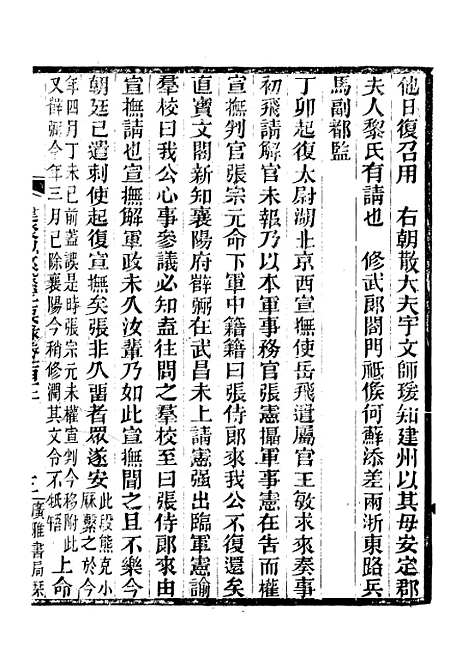 他日復召用　右朝散大夫宇文師瑗知建州以其母安定郡
夫人黎氏有請也　修武郎閤門祗候何蘇添差兩浙東路兵
馬副都監
丁卯起復太尉湖北京西宣撫使岳飛遣屬官王敏求來奏事
初飛請解官未報乃以本軍事務官張憲攝軍事而去而權
宣撫判官張宗元命下軍中籍籍曰張侍郎來我公不復還矣
直寶文閣新知襄陽府薛弼在武昌未上請憲强出臨軍憲諭
羣校曰我公心事參議必知盍往問之羣校至曰張侍郎來由
宣撫請也宣撫解軍政未久汝輩乃如此宣撫聞之且不樂今
朝廷已遣刺使起復宣撫矣張非久留者眾遂安
此段熊克小
厤繫之於今
年四月丁未已前蓋誤是時張宗元未權宣判今移附此
又薛弼今年三月已除襄陽今稍修潤其文令不牴牾
上命
廣雅書局栞